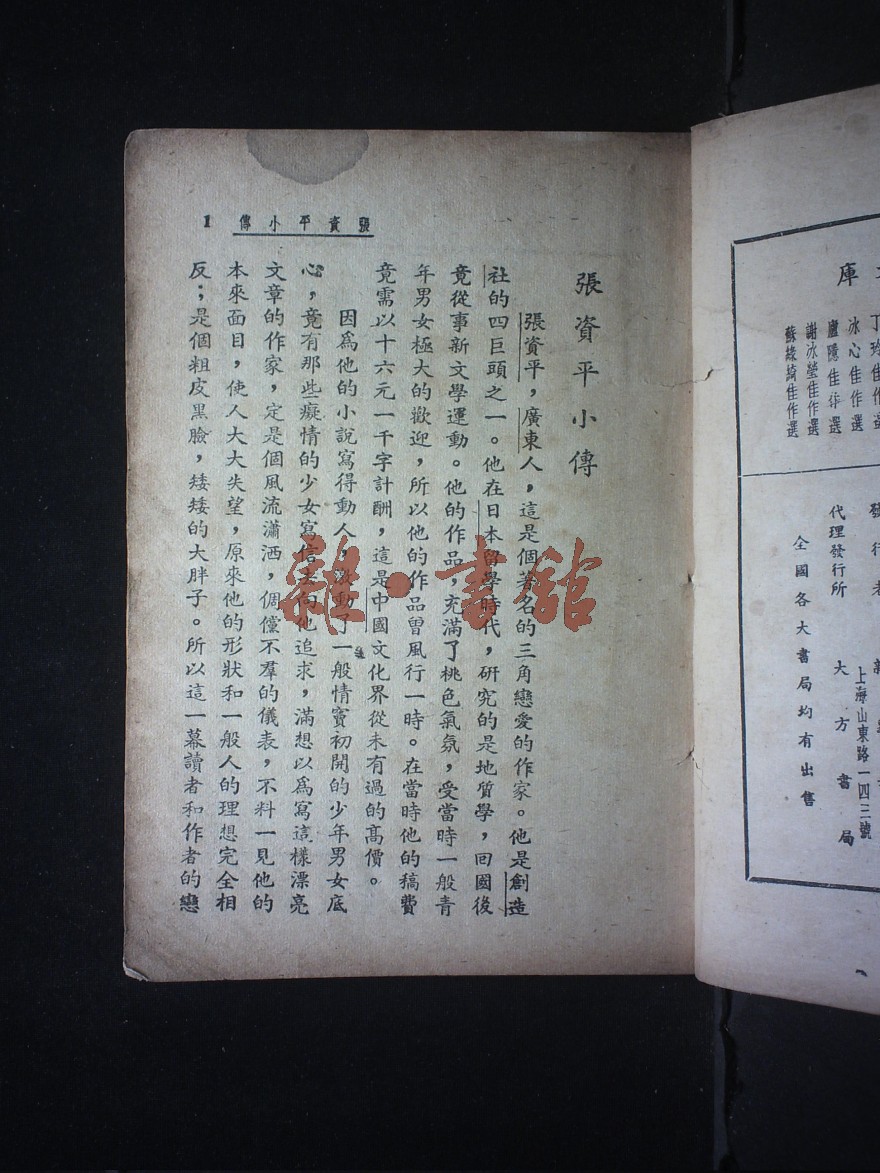 庫
冰心佳作選
廬隱佳作選
謝冰瑩佳作選
蘇綠綺佳作選
發行者
上海山東路一四三號
代理發行所 大方書局
全國各大書局均有出售
張資平小傳 1
張資平小傳
張資平，廣東人，這是個著名的三角戀愛的作家。他是創造
社的四巨頭之一。他在日本留學時代，研究的是地質學，回國後
竟從事新文學運動。他的作品，充滿了桃色氣氛，受當時一般青
年男女極大的歡迎，所以他的作品曾風行一時。在當時他的稿費
竟需以十六元一千字計酬，這是中國文化界從未有過的高價。
因爲他的小說寫得動人，激動了一般情竇初開的少年男女底
心，竟有那些癡情的少女寫信去向他追求，滿想以爲寫這樣漂亮
文章的作家，定是個風流瀟洒，倜儻不羣的儀表，不料一見他的
本來面目，使人大大失望，原來他的形狀和一般人的理想完全相
反；是個粗皮黑臉，矮矮的大胖子。所以這一幕讀者和作者的戀
雜·書館